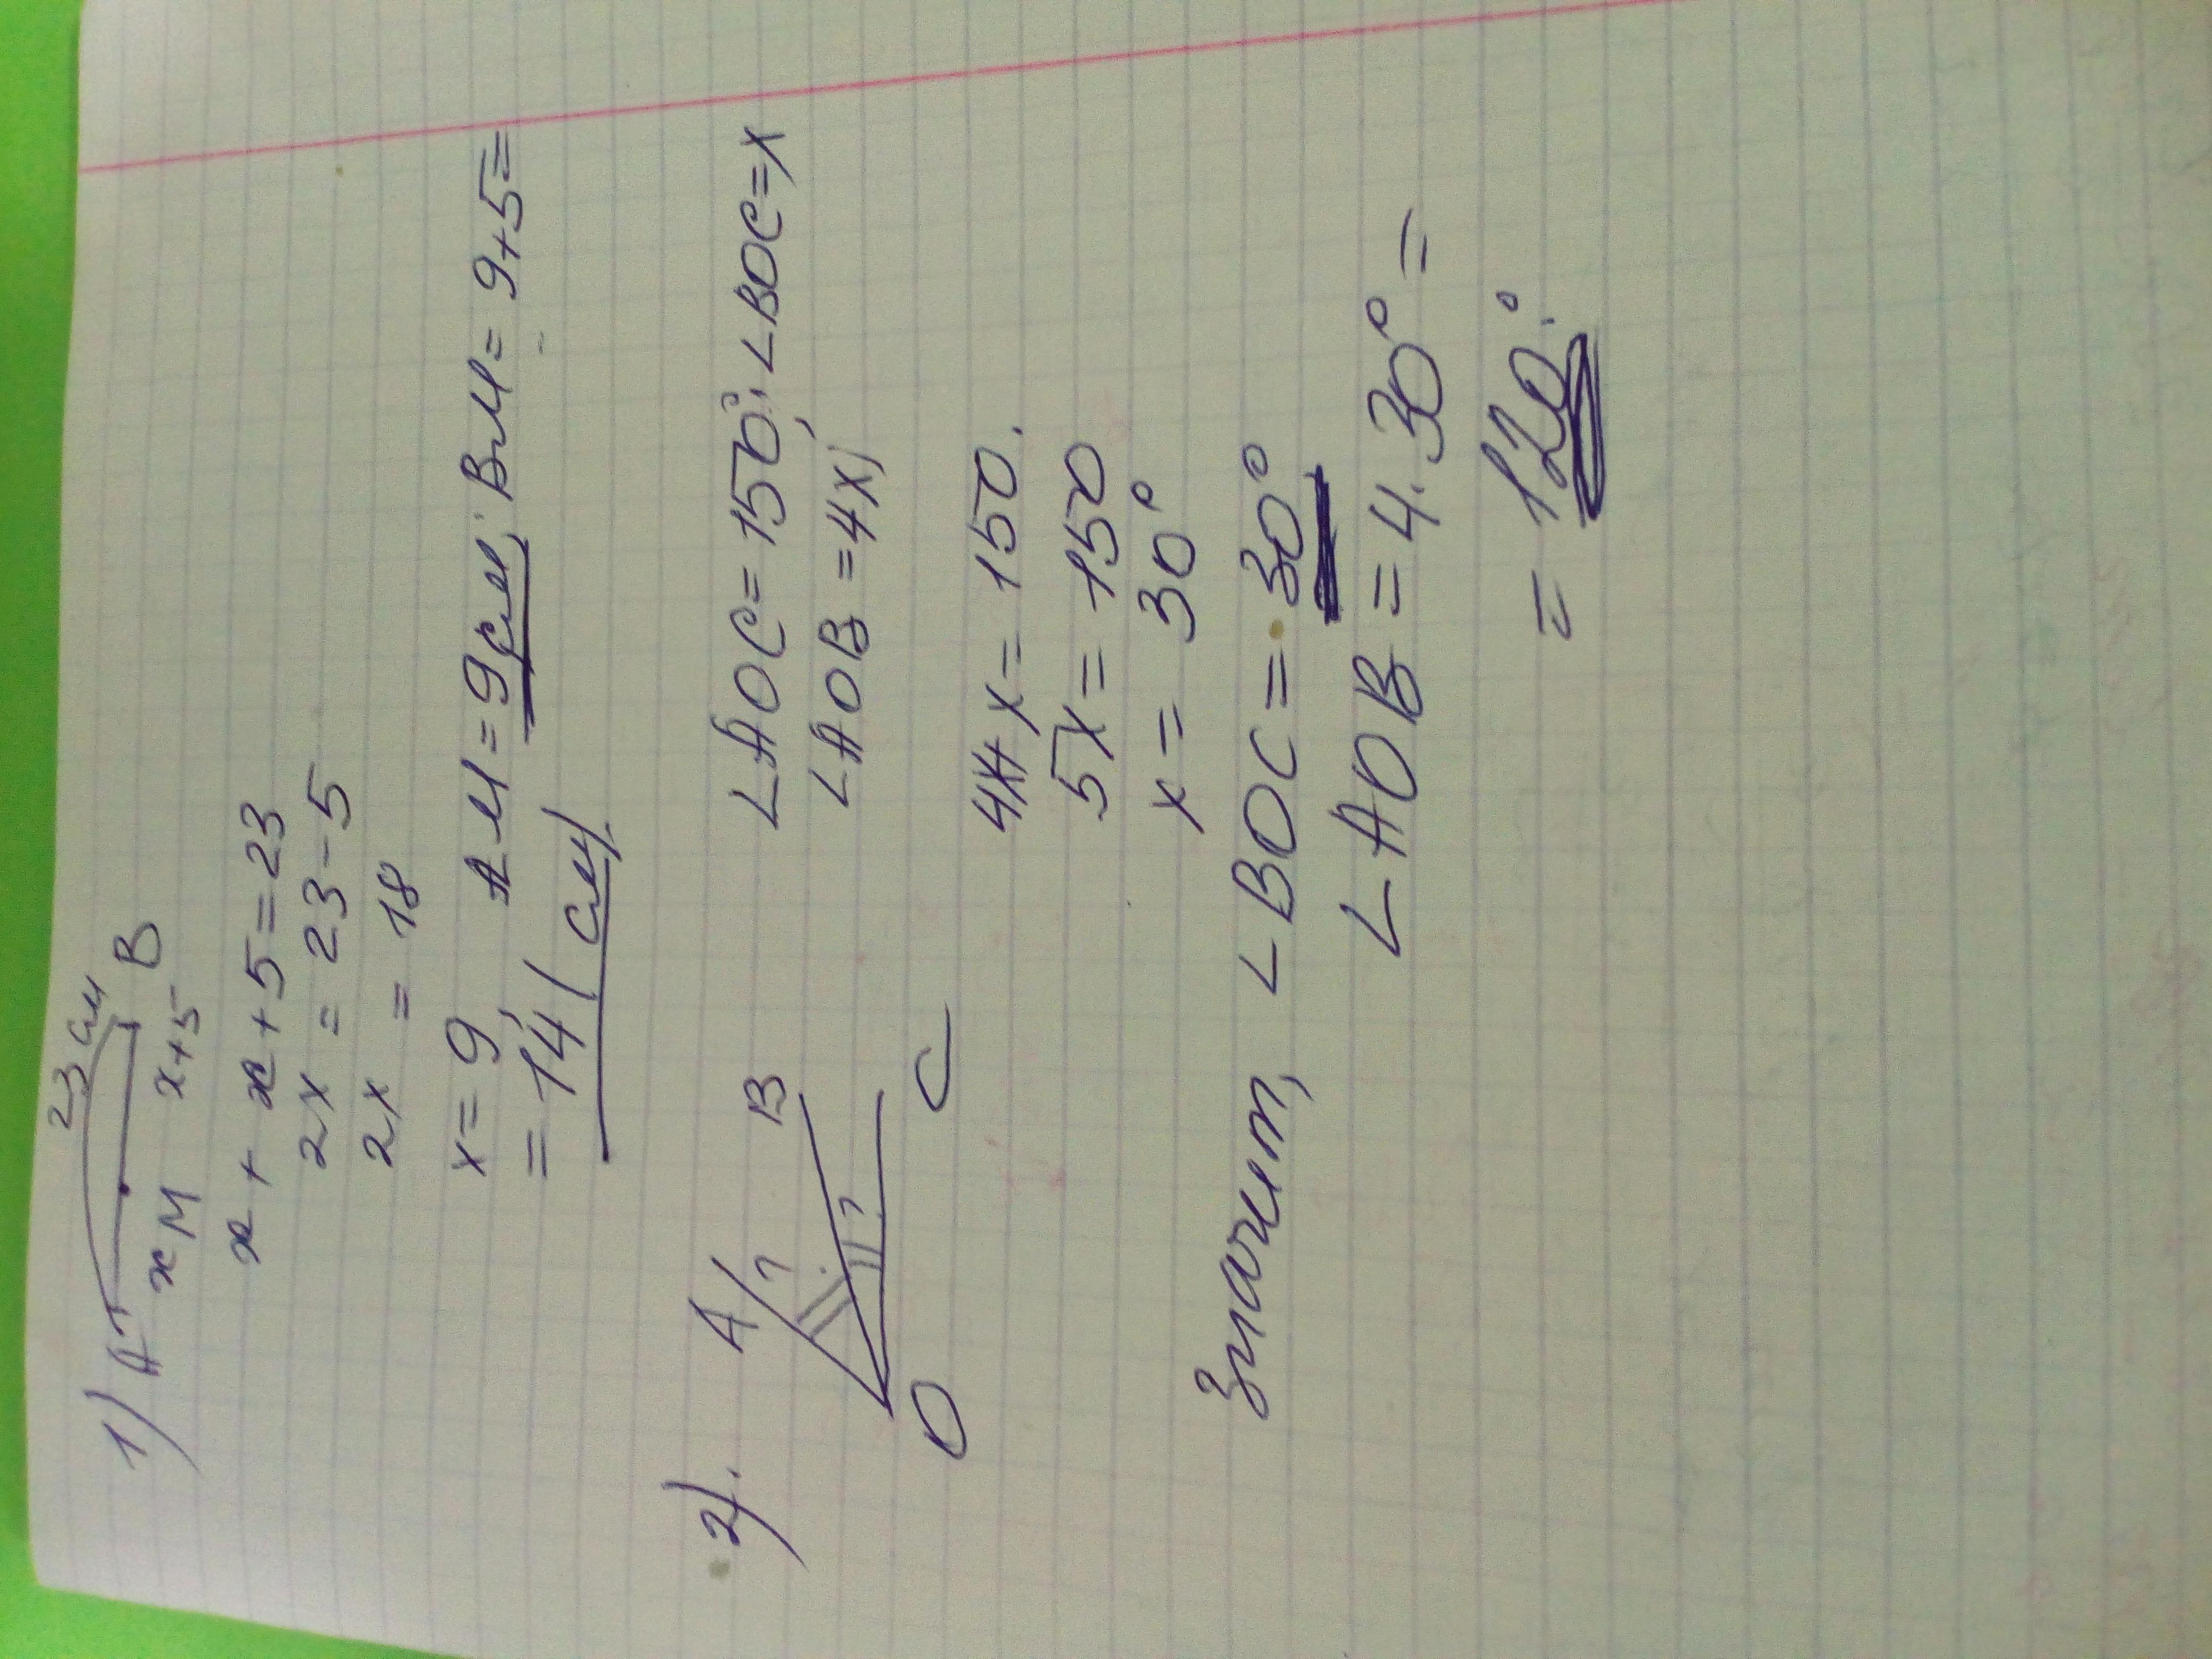 1) 23 см
A B
x M x+5
x + x + 5 = 23
2x = 23 - 5
2x = 18
x = 9, AM = 9 см; BM = 9+5=
= 14 (см)
2). A ? B
?
O C
∠AOC = 150°; ∠BOC = x
∠AOB = 4x;
4x+x = 150.
5x = 150
x = 30°
Значит, ∠BOC = 30°
∠AOB = 4 · 30° =
= 120°.